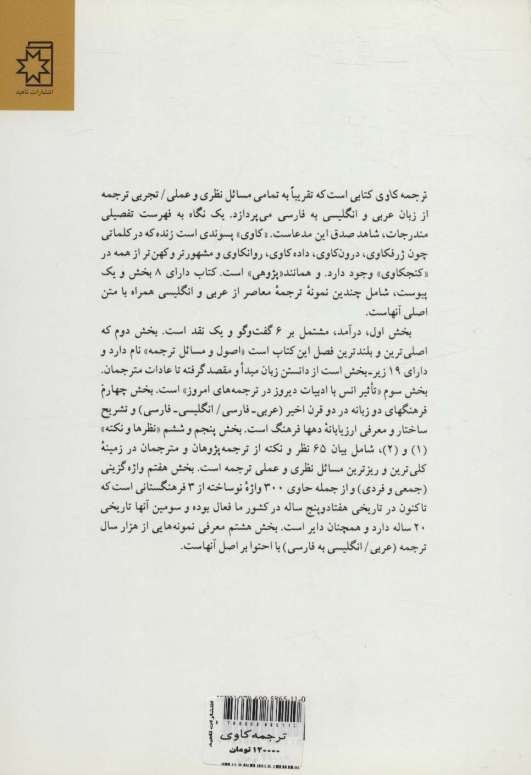 انتشارات ناهید
ترجمه کاوی کتابی است که تقریباً به تمامی مسائل نظری و عملی/ تجربی ترجمه
از زبان عربی و انگلیسی به فارسی می‌پردازد. یک نگاه به فهرست تفصیلی
مندرجات، شاهد صدق این مدعاست. «کاوی» پسوندی است زنده که در کلماتی
چون ژرفکاوی، درون‌کاوی، داده کاوی، روانکاوی و مشهورتر و کهن‌تر از همه در
«کنجکاوی» وجود دارد. و همانند«پژوهی» است. کتاب دارای ۸ بخش و یک
پیوست، شامل چندین نمونهٔ ترجمهٔ معاصر از عربی و انگلیسی همراه با متن
اصلی آنهاست.
بخش اول، درآمد، مشتمل بر ۶ گفت‌وگو و یک نقد است. بخش دوم که
اصلی‌ترین و بلندترین فصل این کتاب است «اصول و مسائل ترجمه» نام دارد و
دارای ۱۹ زیر-بخش است از دانستن زبان مبدأ و مقصد گرفته تا عادات مترجمان.
بخش سوم «تأثیر انس با ادبیات دیروز در ترجمه‌های امروز» است. بخش چهارم
فرهنگهای دو زبانه در دو قرن اخیر (عربی- فارسی/ انگلیسی- فارسی) و تشریح
ساختار و معرفی ارزیابانهٔ دهها فرهنگ است. بخش پنجم و ششم «نظرها و نکته»
(۱) و (۲)، شامل بیان ۶۵ نظر و نکته از ترجمه‌پژوهان و مترجمان در زمینهٔ
کلی‌ترین و ریزترین مسائل نظری و عملی ترجمه است. بخش هفتم واژه گزینی
(جمعی و فردی) و از جمله حاوی ۳۰۰ واژهٔ نوساخته از ۳ فرهنگستانی است که
تاکنون در تاریخی هفتادوپنج ساله در کشور ما فعال بوده و سومین آنها تاریخی
۲۰ ساله دارد و همچنان دایر است. بخش هشتم معرفی نمونه‌هایی از هزار سال
ترجمه (عربی/ انگلیسی به فارسی) با احتوا بر اصل آنهاست.
ترجمه کاوی
۱۲۰۰۰۰ تومان